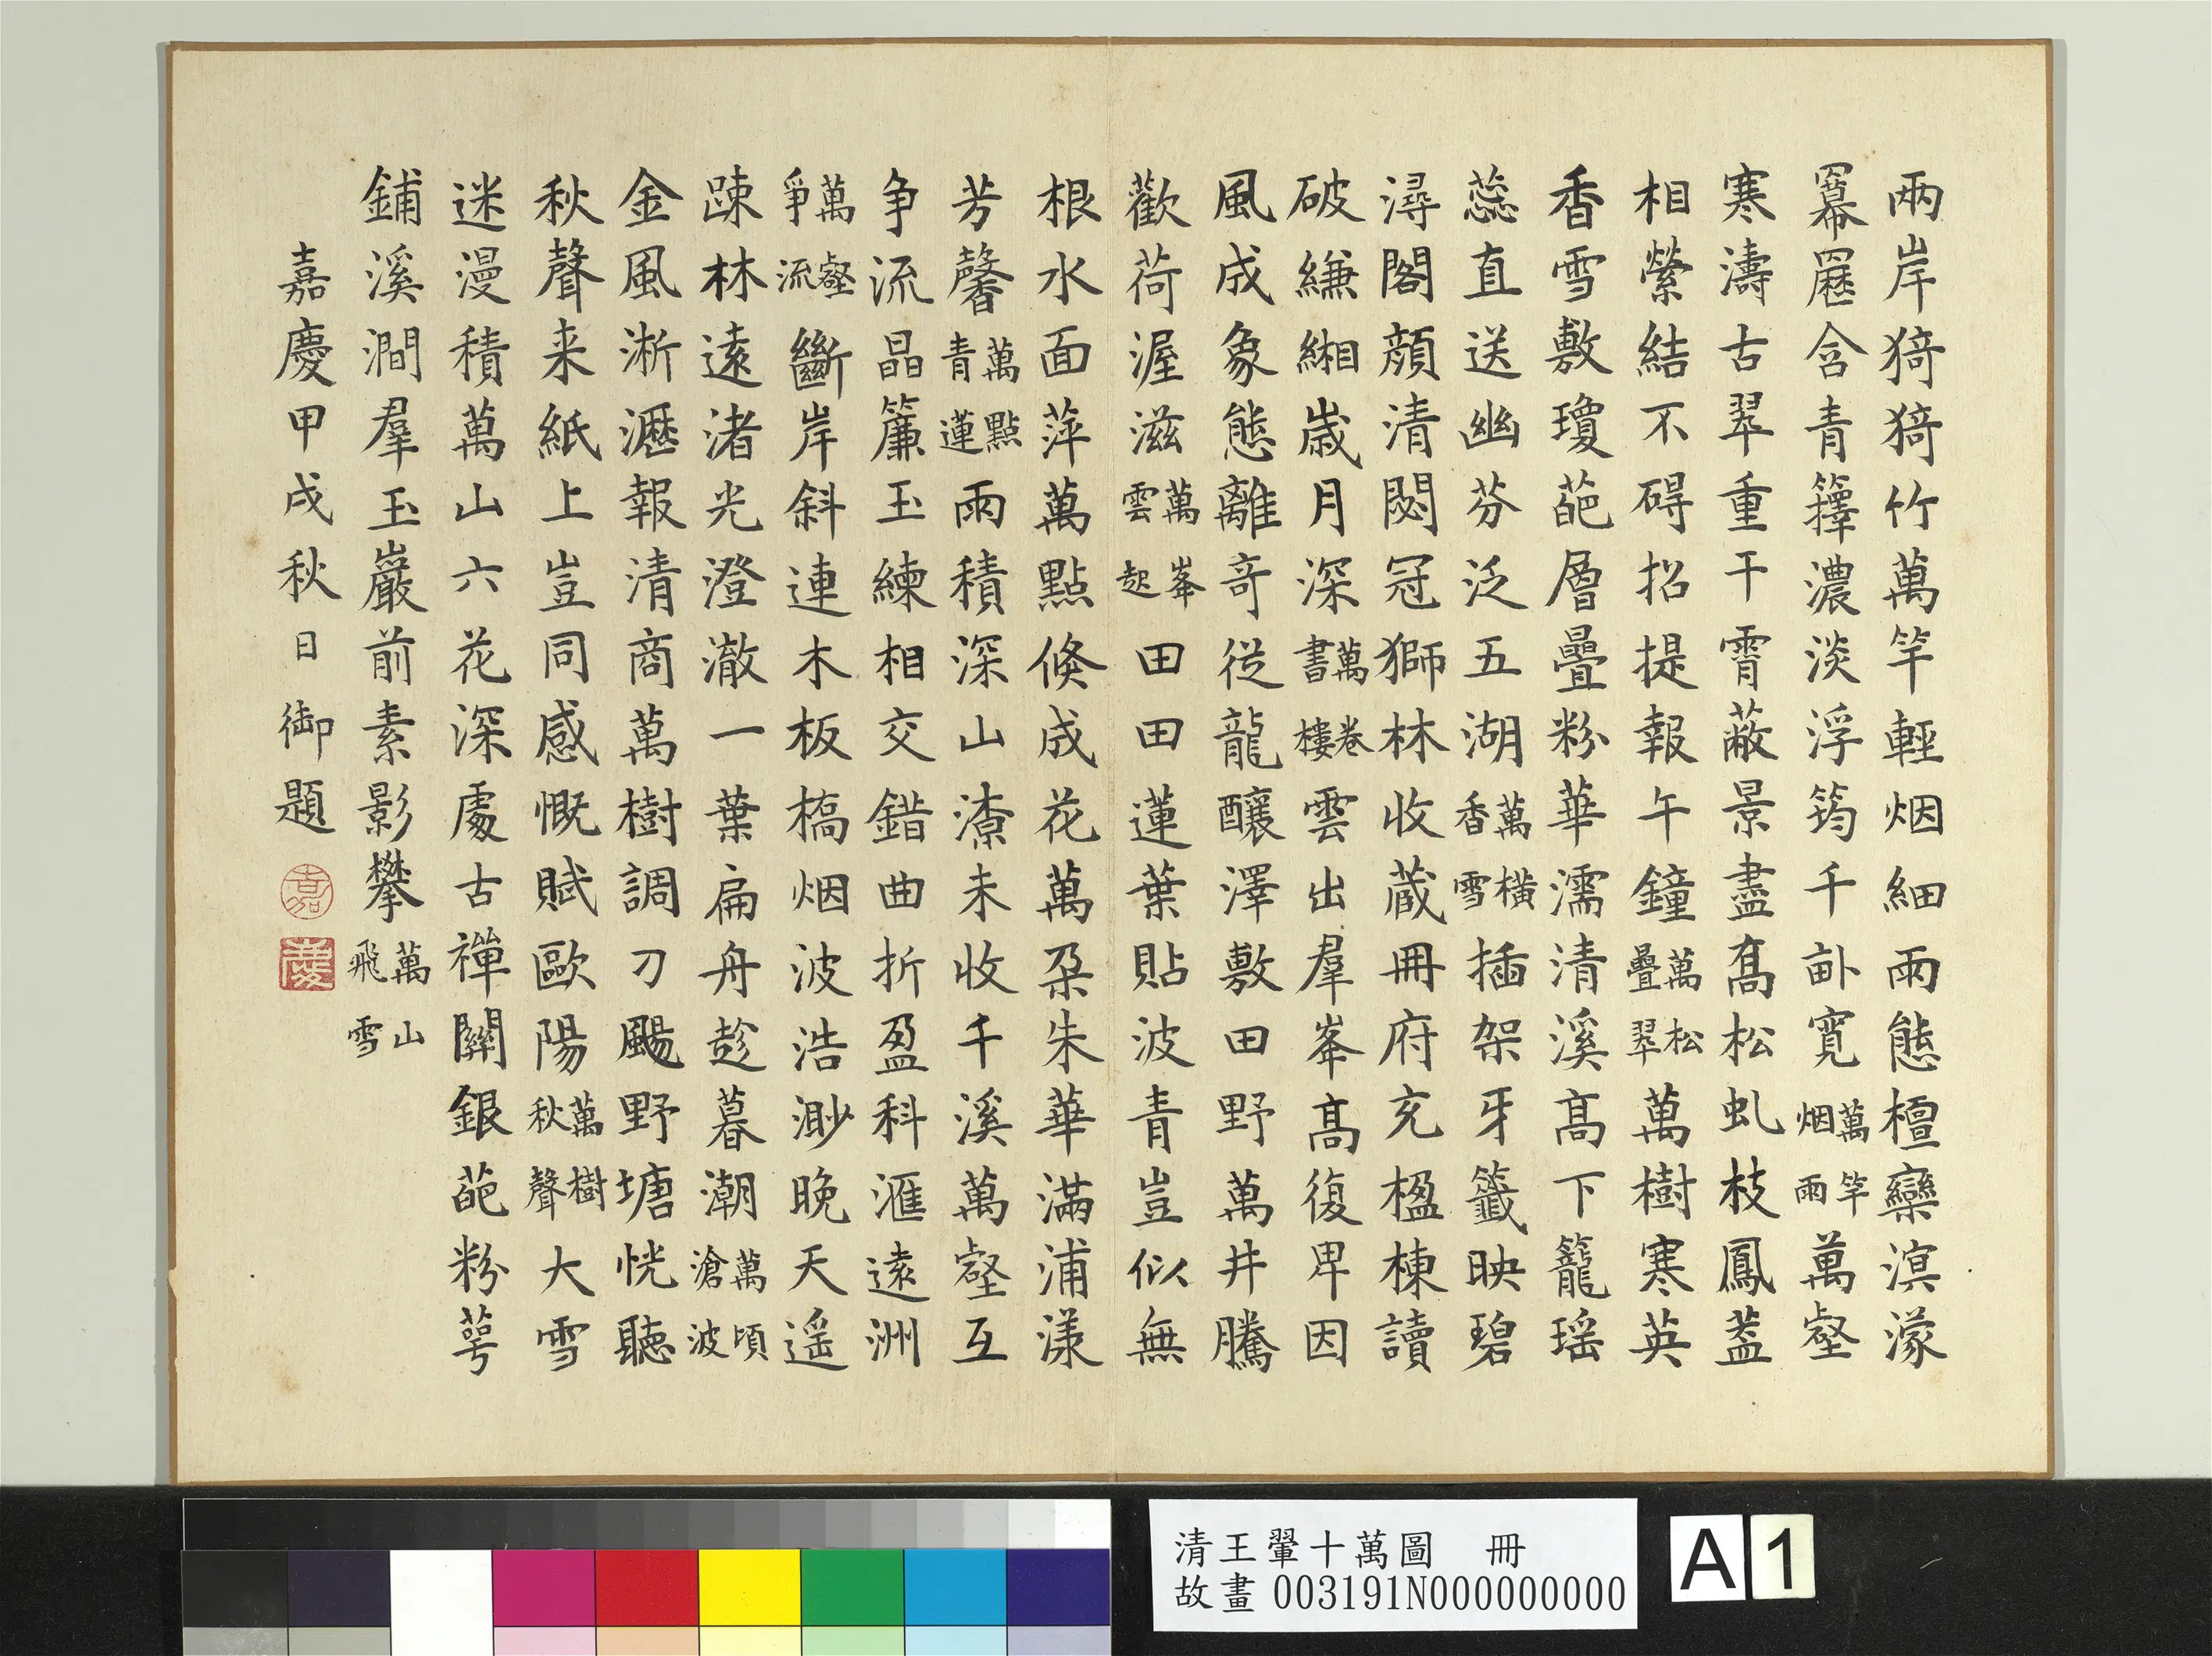 兩岸猗猗竹萬竿輕烟細雨態檀欒溟濛
羃䍥含青籜濃淡浮筠千畝寬萬竿烟雨萬壑
寒濤古翠重干霄蔽景盡髙松虬枝鳳葢
相縈結不碍招提報午鐘萬松疊翠萬樹寒英
香雪敷瓊葩層疊粉華濡清溪髙下籠瑶
蕊直送幽芬泛五湖萬橫香雪插架牙籤映碧
潯閣顔清閟冠獅林收蔵冊府充楹棟讀
破縑緗歲月深萬卷書樓雲出羣峯髙復卑因
風成象態離奇從龍釀澤敷田野萬井騰
歡荷渥滋萬峯雲起田田蓮葉貼波青豈似無
根水面萍萬點倏成花萬朶朱華滿浦漾
芳馨萬點青蓮雨積深山潦未收千溪萬壑互
争流晶簾玉練相交錯曲折盈科滙遠洲
萬壑爭流斷岸斜連木板橋烟波浩渺晚天遥
踈林遠渚光澄澈一葉扁舟趁暮潮萬頃滄波
金風淅瀝報清商萬樹調刁颺野塘恍聽
秋聲来紙上豈同感慨賦歐陽萬樹秋聲大雪
迷漫積萬山六花深處古禪關銀葩粉萼
鋪溪澗羣玉巖前素影攀萬山飛雪
嘉慶甲戌秋日御題
嘉
慶
清王翬十萬圖 冊
故畫003191N000000000
A 1